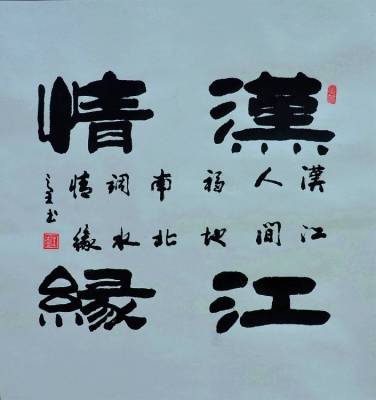 漢江
情緣
漢江
人間
福地
南北
調水
情緣
书